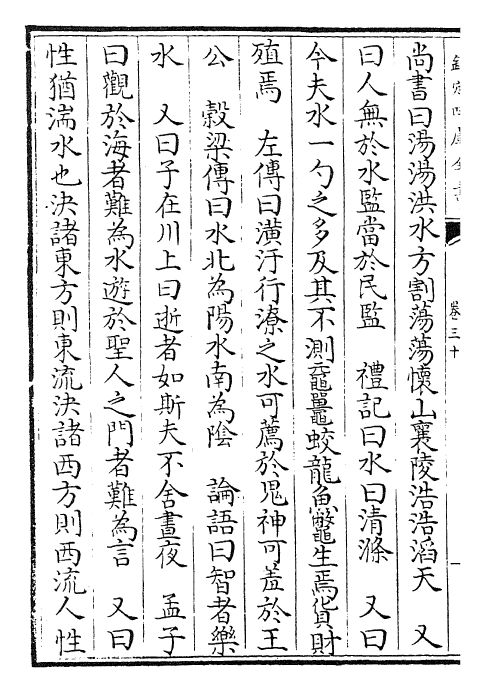 欽定四庫全書
卷三十
一
尚書曰湯湯洪水方割蕩蕩懷山襄陵浩浩滔天　又
曰人無於水監當於民監　禮記曰水曰清滌　又曰
今夫水一勺之多及其不測黿鼉蛟龍魚鼈生焉貨財
殖焉　左傳曰潢汙行潦之水可薦於鬼神可羞於王
公　穀梁傳曰水北為陽水南為陰　論語曰智者樂
水　又曰子在川上曰逝者如斯夫不舍晝夜　孟子
曰觀於海者難為水遊於聖人之門者難為言　又曰
性猶湍水也決諸東方則東流決諸西方則西流人性